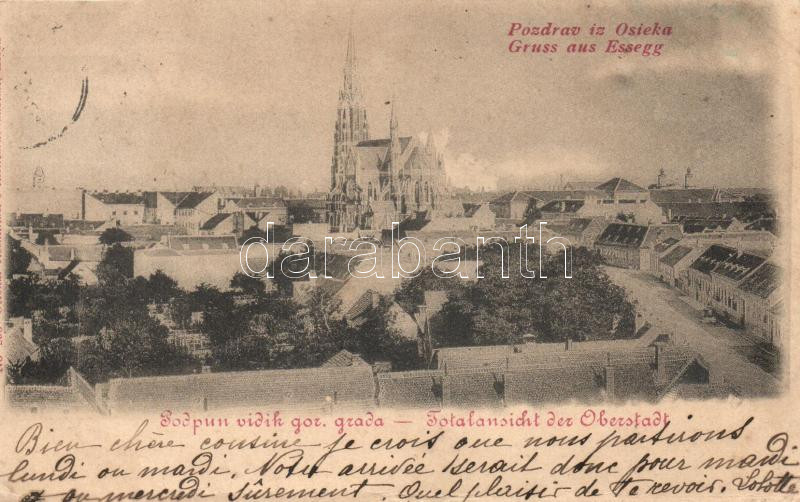 Pozdrav iz Osieka
Gruss aus Essegg
darabanth
Podpun vidik gor. grada — Totalansicht der Oberstadt
Bien chère cousine je crois que nous partirons
lundi ou mardi. Notre arrivée serait donc pour mardi
ou mercredi sûrement. Quel plaisir de te revoir. Lolotte